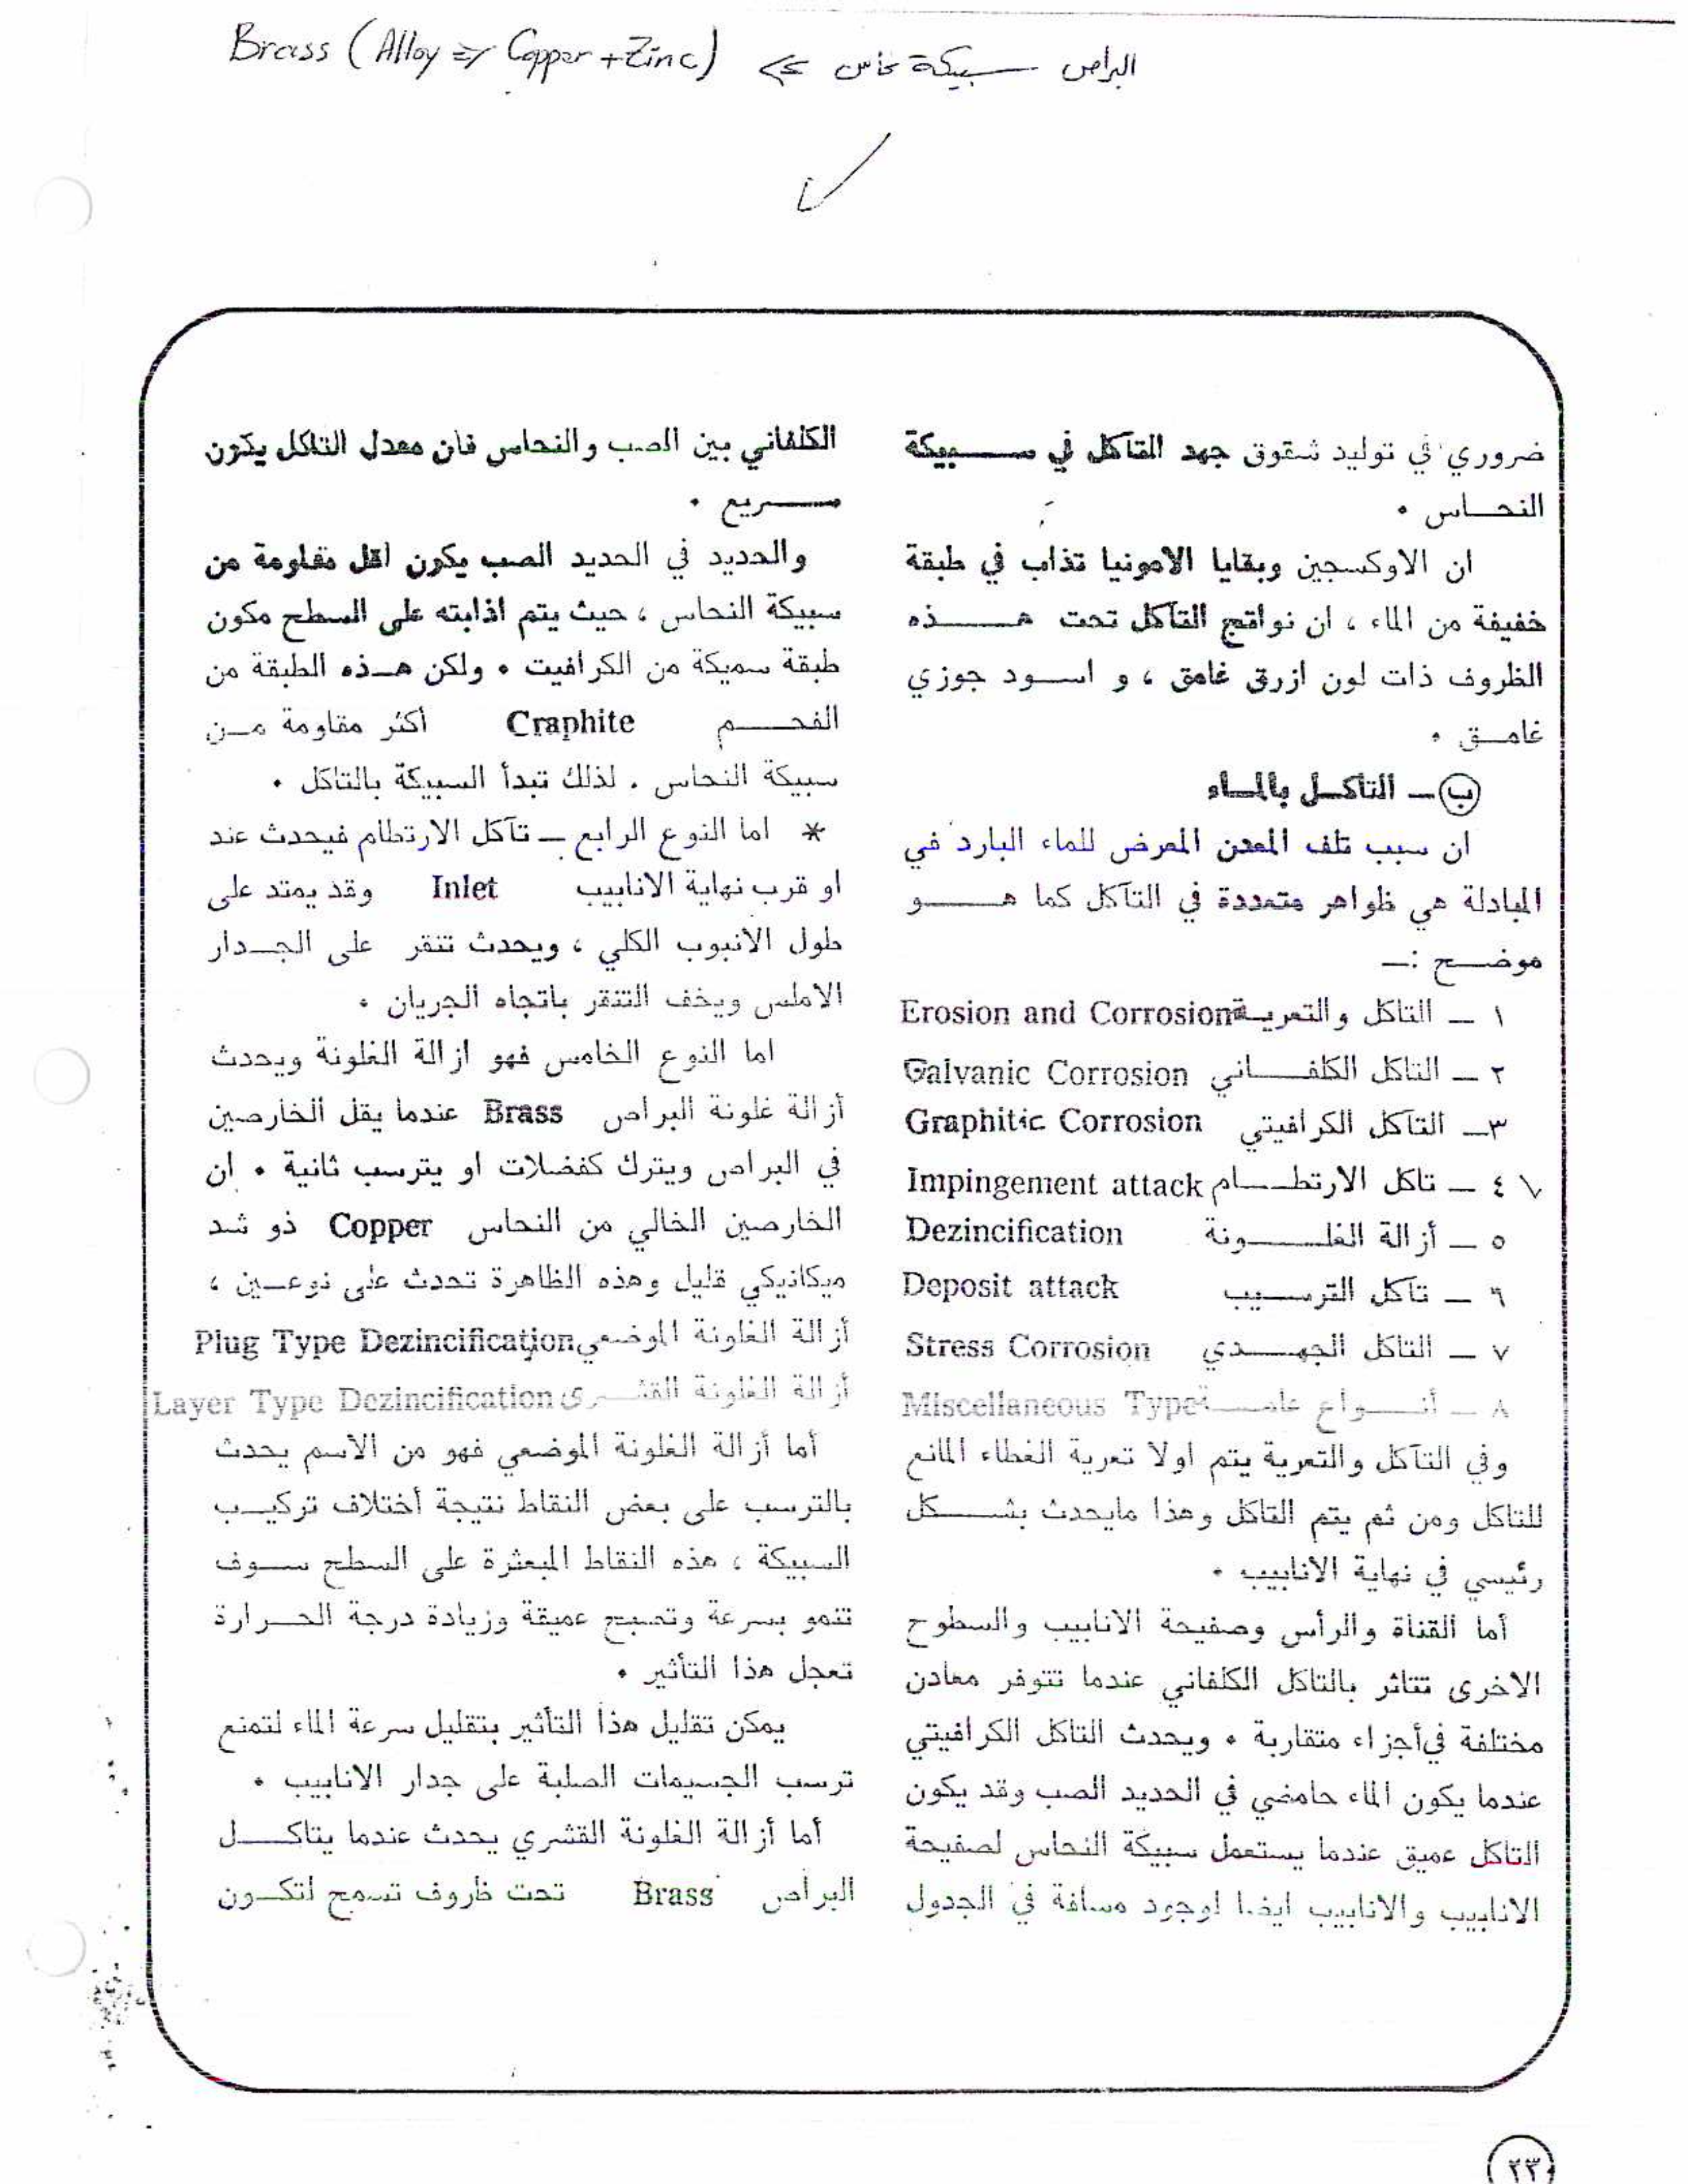 Brass (Alloy => Copper + Zinc) <= البراص سبيكة نحاس
ضروري في توليد شقوق جهد التآكل في سبيكة
النحاس .
ان الاوكسجين وبقايا الامونيا تذاب في طبقة
خفيفة من الماء ، ان نواتج التآكل تحت هذه
الظروف ذات لون ازرق غامق ، و اسود جوزي
غامق .
ب - التآكل بالماء
ان سبب تلف المعدن المعرض للماء البارد في
المبادلة هي ظواهر متعددة في التآكل كما هو
موضح :-
١ - التاكل والتعرية Erosion and Corrosion
٢ - التاكل الكلفاني Galvanic Corrosion
٣- التآكل الكرافيتي Graphitic Corrosion
٤ - تاكل الارتطام Impingement attack
٥ - أزالة الغلونة Dezincification
٦ - تاكل الترسيب Deposit attack
٧ - التاكل الجهدي Stress Corrosion
٨ - أنواع عامة Miscellaneous Type
وفي التآكل والتعرية يتم اولا تعرية الغطاء المانع
للتاكل ومن ثم يتم التاكل وهذا مايحدث بشكل
رئيسي في نهاية الانابيب .
أما القناة والرأس وصفيحة الانابيب والسطوح
الاخرى تتاثر بالتاكل الكلفاني عندما تتوفر معادن
مختلفة في أجزاء متقاربة . ويحدث التاكل الكرافيتي
عندما يكون الماء حامضي في الحديد الصب وقد يكون
التاكل عميق عندما يستعمل سبيكة النحاس لصفيحة
الانابيب والانابيب ايضا لوجود مسافة في الجدول
الكلفاني بين الصب والنحاس فان معدل التاكل يكون
سريع .
والحديد في الحديد الصب يكون اقل مقاومة من
سبيكة النحاس ، حيث يتم اذابته على السطح مكون
طبقة سميكة من الكرافيت . ولكن هذه الطبقة من
الفحم Craphite أكثر مقاومة من
سبيكة النحاس . لذلك تبدأ السبيكة بالتاكل .
* اما النوع الرابع - تآكل الارتطام فيحدث عند
او قرب نهاية الانابيب Inlet وقد يمتد على
طول الانبوب الكلي ، ويحدث تنقر على الجدار
الاملس ويخف التنقر باتجاه الجريان .
اما النوع الخامس فهو ازالة الغلونة ويحدث
أزالة غلونة البراص Brass عندما يقل الخارصين
في البراص ويترك كفضلات او يترسب ثانية . ان
الخارصين الخالي من النحاس Copper ذو شد
ميكانيكي قليل وهذه الظاهرة تحدث على نوعين ،
أزالة الغلونة الموضعي Plug Type Dezincification
أزالة الغلونة القشرى Layer Type Dezincification
أما أزالة الغلونة الموضعي فهو من الاسم يحدث
بالترسب على بعض النقاط نتيجة أختلاف تركيب
السبيكة ، هذه النقاط المبعثرة على السطح سوف
تنمو بسرعة وتصبح عميقة وزيادة درجة الحرارة
تعجل هذا التأثير .
يمكن تقليل هذا التأثير بتقليل سرعة الماء لتمنع
ترسب الجسيمات الصلبة على جدار الانابيب .
أما أزالة الغلونة القشري يحدث عندما يتاكل
البراص Brass تحت ظروف تسمح لتكون
٢٣